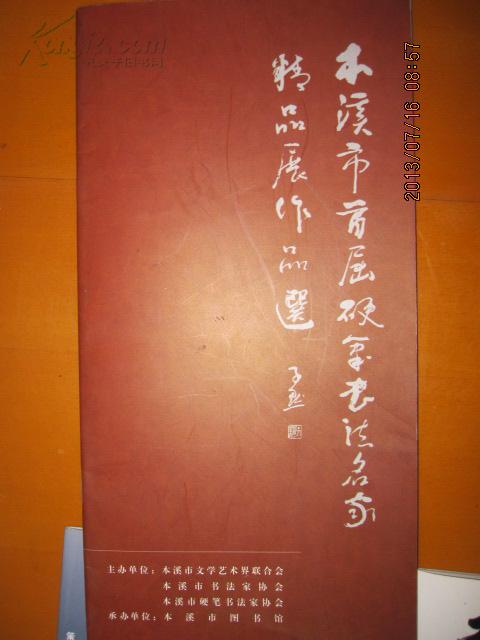 本溪市首届硬笔书法名家
精品展作品選
主办单位：本溪市文学艺术界联合会
本溪市书法家协会
本溪市硬笔书法家协会
承办单位：本溪市图书馆
2013/07/16 08:57
Kongfz.com
孔夫子旧书网